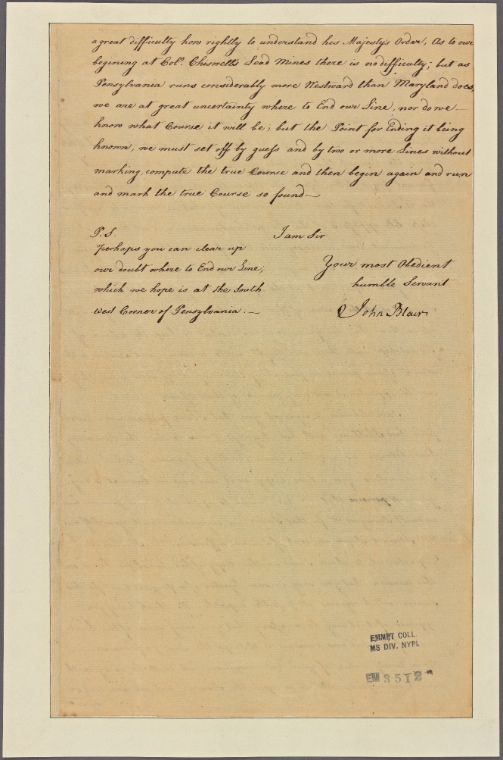 a great difficulty how rightly to understand his Majesty's Order, As to our
begining at Col.º Chiswells Lead Mines there is no difficulty; but as
Pensylvania runs considerably more Westward than Maryland does,
we are at great uncertainty where to End our Line, nor do we
know what Course it will be; but the Point for Ending it being
known, we must set off by guess and by two or more Lines without
marking, compute the true Course and then begin again and run
and mark the true Course so found—
P.S.
Perhaps you can clear up
our doubt where to End our Line;
which we hope is at the South
West Corner of Pensylvania.—
I am Sir
Your most Obedient
humble Servant
John Blair
EMMET COLL.
MS DIV. NYPL
EM 3512